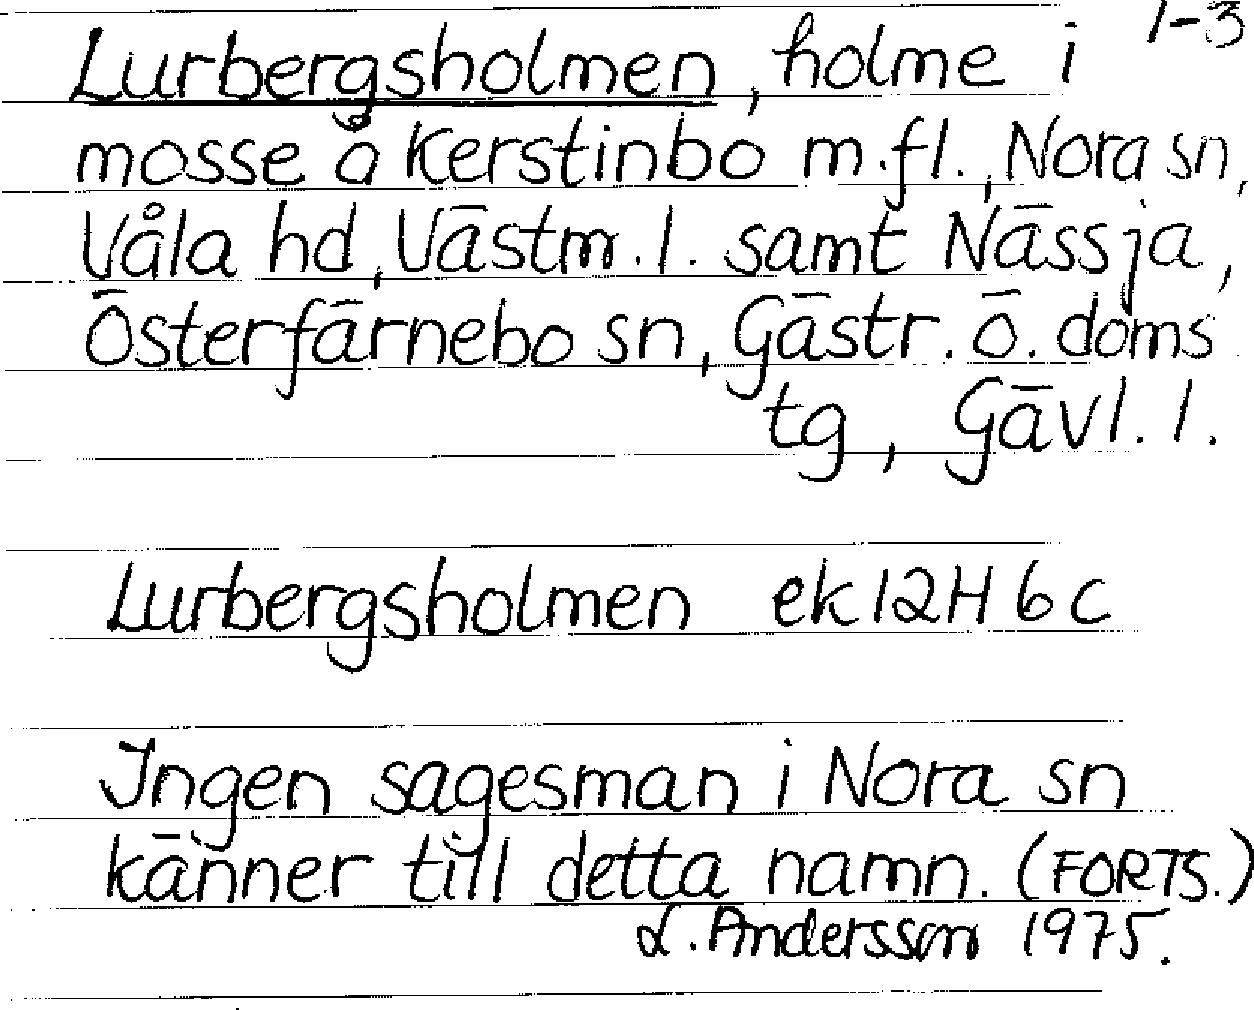 1-3
Lurbergsholmen, holme i
mosse å Kerstinbo m.fl., Nora sn,
Våla hd, Västm.l. samt Nässja,
Österfärnebo sn, Gästr. ö. doms
tg, Gävl.l.
Lurbergsholmen ek 12H 6c
Ingen sagesman i Nora sn
känner till detta namn. (FORTS.)
L. Andersson 1975.